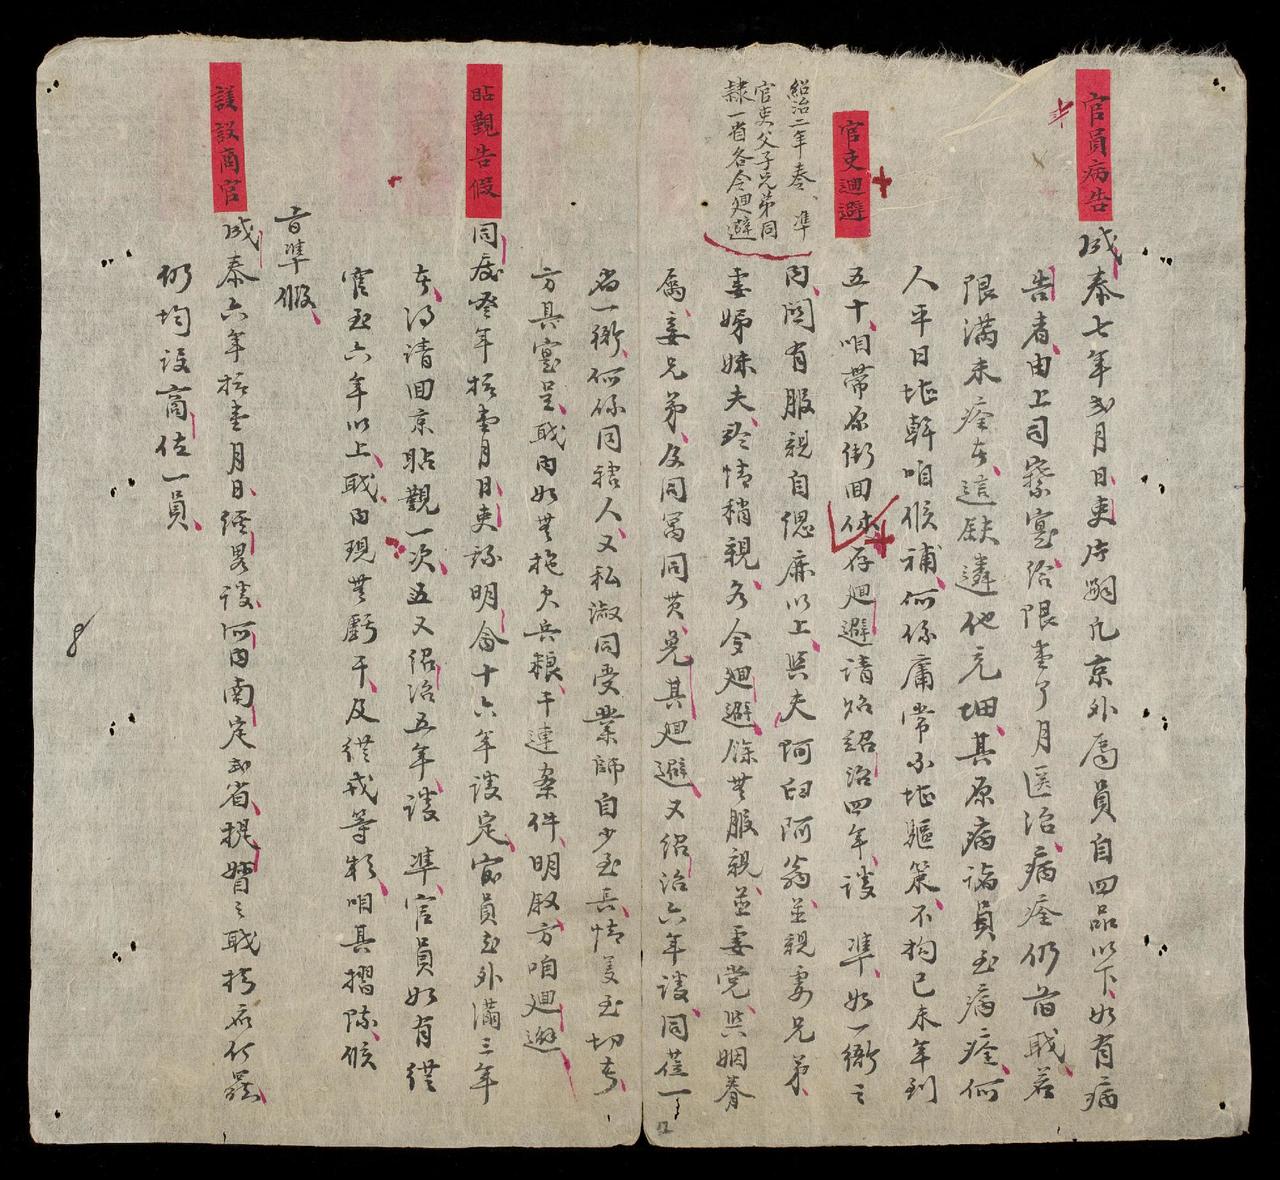 官員病告
成泰七年弍月日吏片嗣凡京外屬員自四品以下如有病
告者由上司察寔給限壹了月医治病痊仍留職若
限滿未痊者這缺遴他充捆其原病請員至病痊何
人平日堪幹咱候補何係庸常不堪驅策不拘已未年到
五十咱帶原銜回休
官吏迴避
紹治二年奏準
官吏父子兄弟同
隸一省各令迴避
存迴避請炤紹治四年議準如一衙之
內闗有服親自緦麻以上與夫阿舅阿翁並親妻兄弟
妻姊妹夫於情稍親各令迴避餘無服親並妻党與姻眷
屬妾兄弟及同寓同貫免其迴避又紹治六年議同莅一
省一衙何係同轄人又私淑同受業師自少至長情義至切者
方具寔呈職內如無拖欠兵粮干連案件明叙方咱迴避
貼觀告假
同慶癸年拾壹月日吏該明命十六年議定官員在外滿三年
者得請回京貼觀一次五又紹治五年議準官員如有從
官至六年以上職內現無虧干及從戎等款咱具摺陳候
旨準假
議設商官
成泰六年拾壹月日經畧議河內南定弍省
仍均設商佐一員